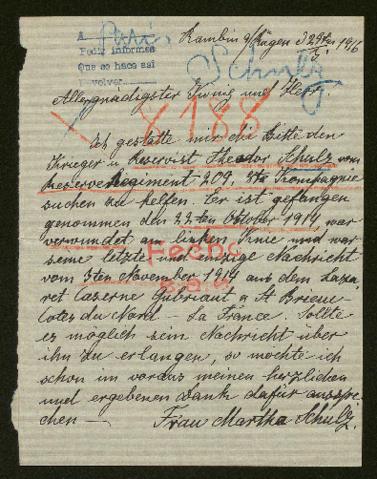 A Paris
Pedir informes
Que se hace asi
Devolver
Rambin a/Rügen 1916
Schulz
Allergnädigster König und Herr.
8188
Ich gestatte mir die Bitte den
Krieger u. Reservist Theodor Schulz vom
Reserveregiment 209. 3te Kompagnie
suchen zu helfen. Er ist gefangen
genommen den 22ten Oktober 1914, war
verwundet am linken Knie und war
seine letzte und einzige Nachricht
vom 3ten November 1914 aus dem Laza-
ret Caserne Gubriant a St Brieue
Cotes du Nord – La France. Sollte
es möglich sein Nachricht über
ihn zu erlangen, so möchte ich
schon im voraus meinen herzlichen
und ergebenen Dank dafür ausspre-
chen — Frau Martha Schulz.